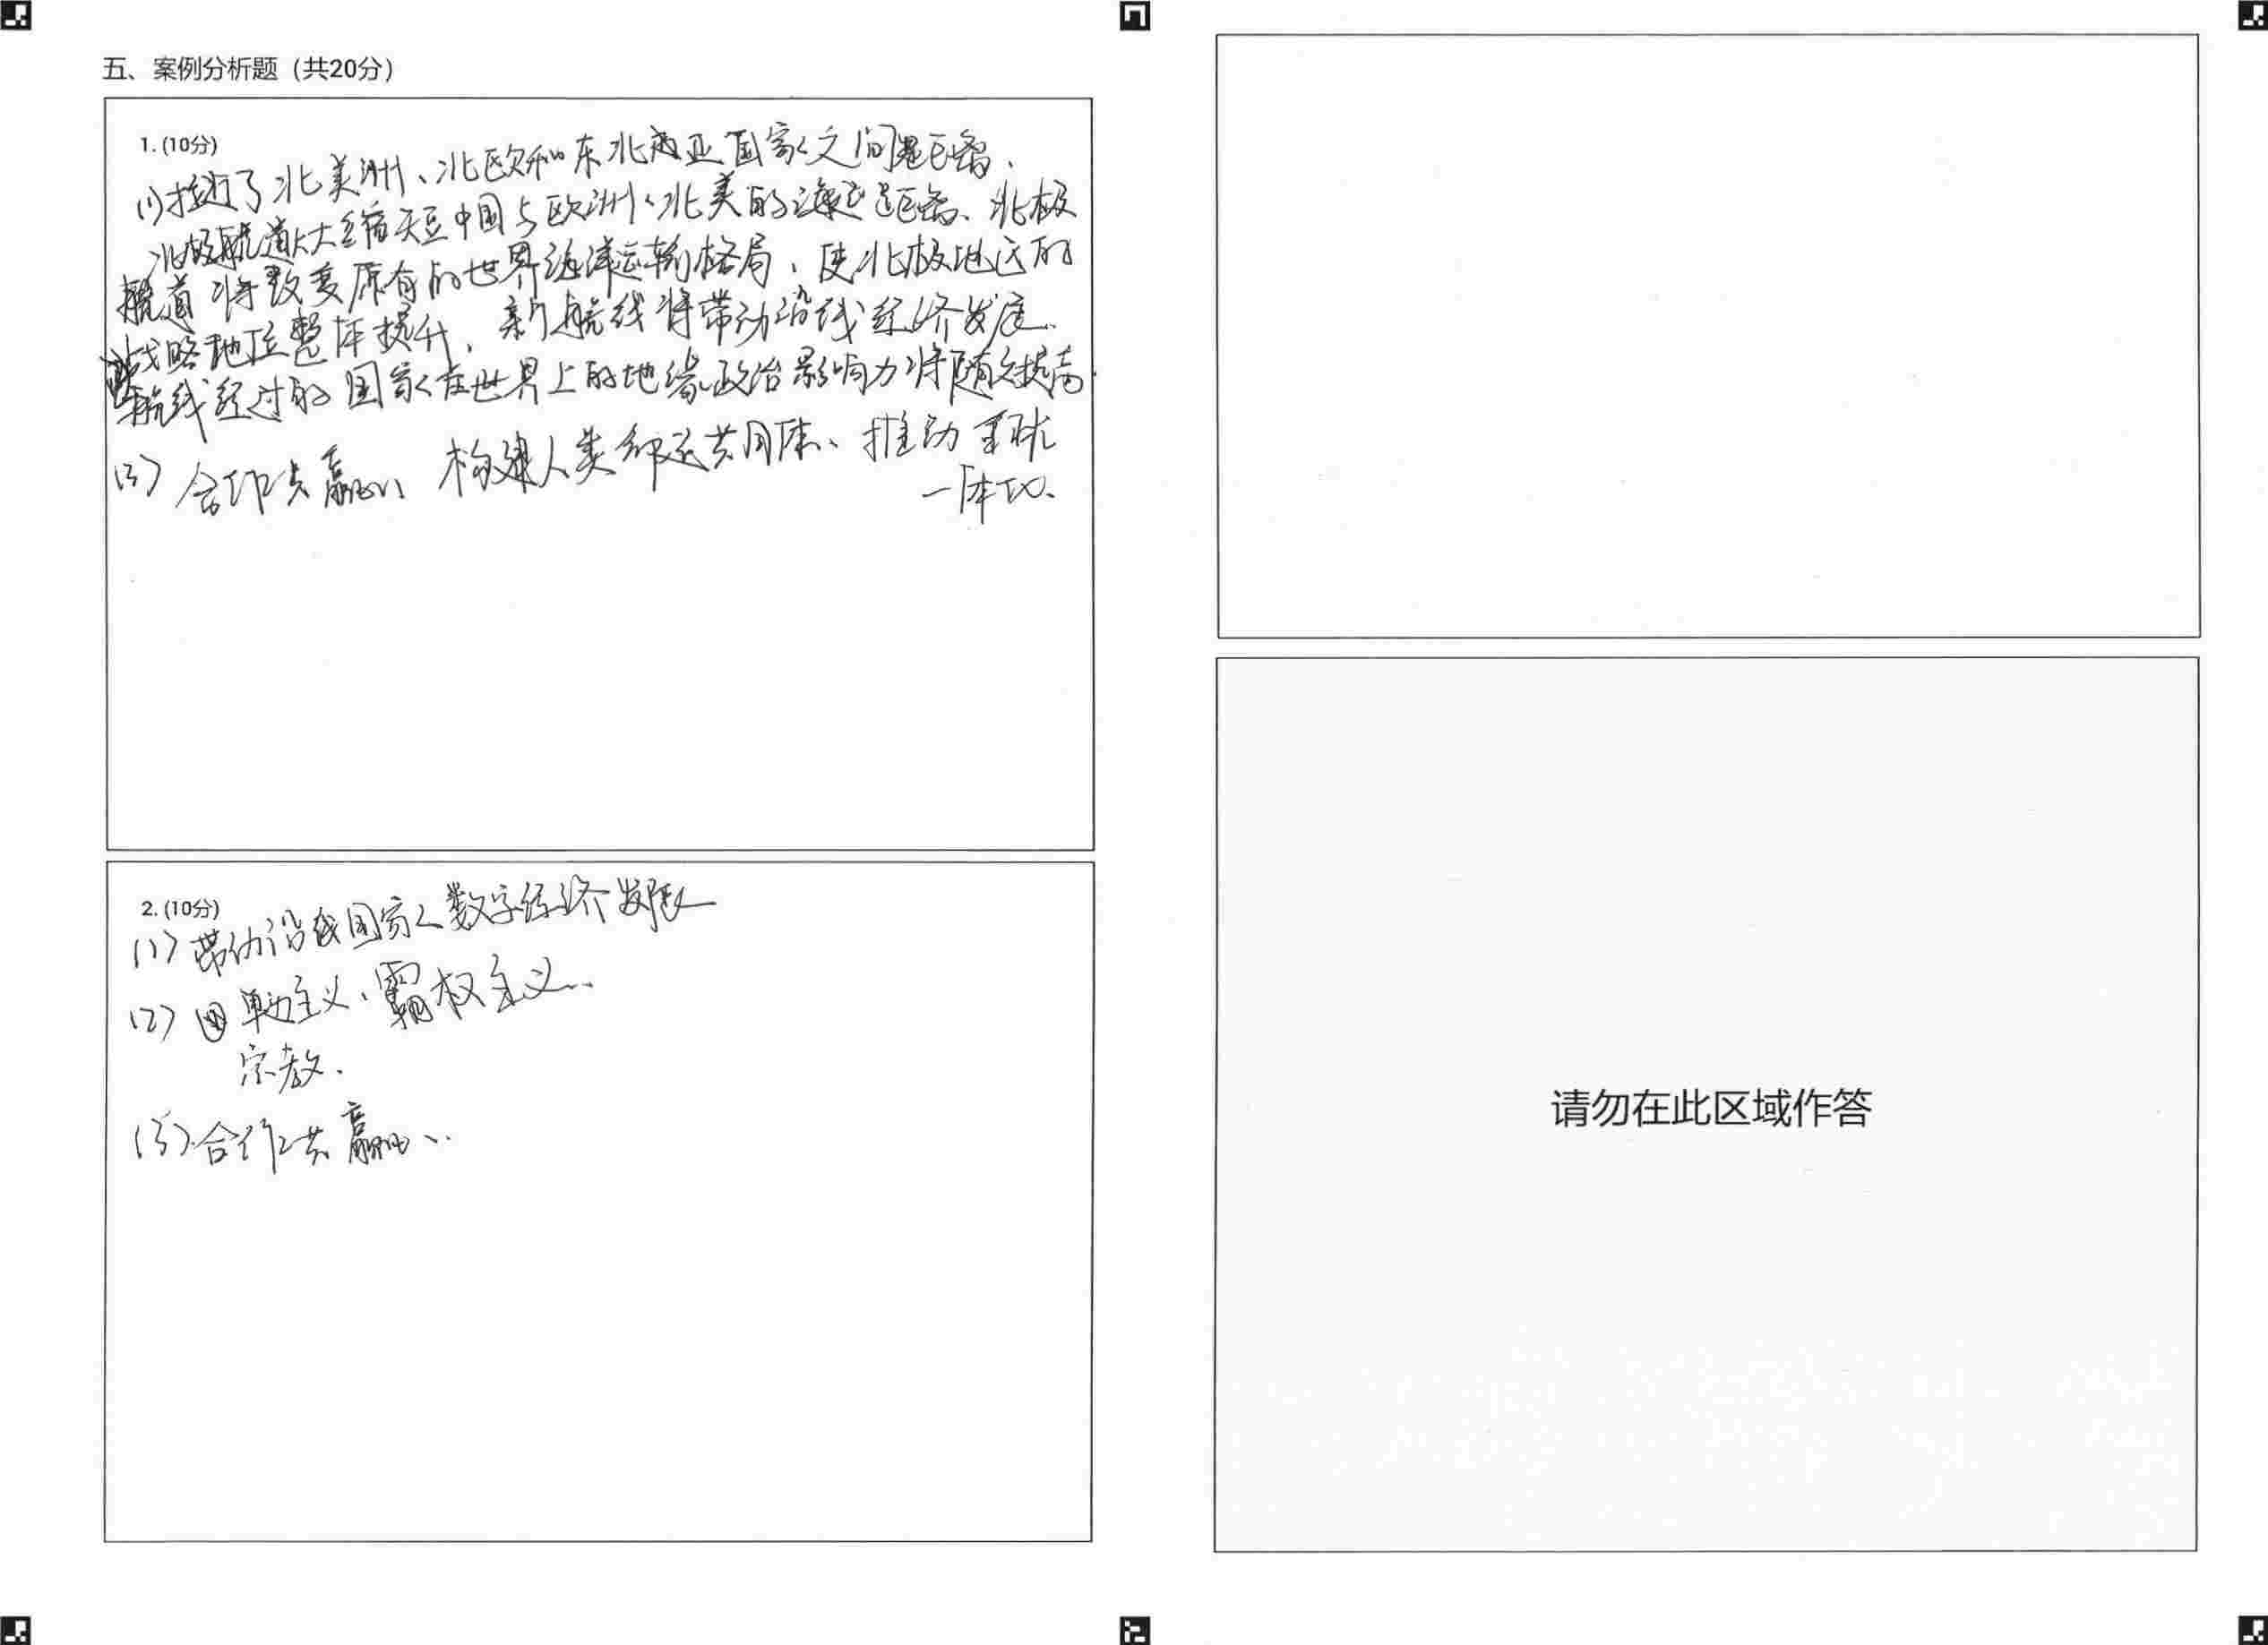 五、案例分析题（共20分）
1. (10分)
(1)拉近了北美洲、北欧和东北亚国家之间距离、
北极航道大大缩短中国与欧洲、北美的海运距离、北极
航道将改变原有的世界海洋运输格局、使北极地区的
战略地位整体提升，新航线将带动沿线经济发展、
航线经过的国家在世界上的地缘政治影响力将随之提高.
(3) 合作共赢、构建人类命运共同体、推动全球
一体化、
2. (10分)
(1) 带动沿线国家数字经济发展
(2) 单边主义、霸权主义、
宗教.
(3) 合作共赢、
请勿在此区域作答